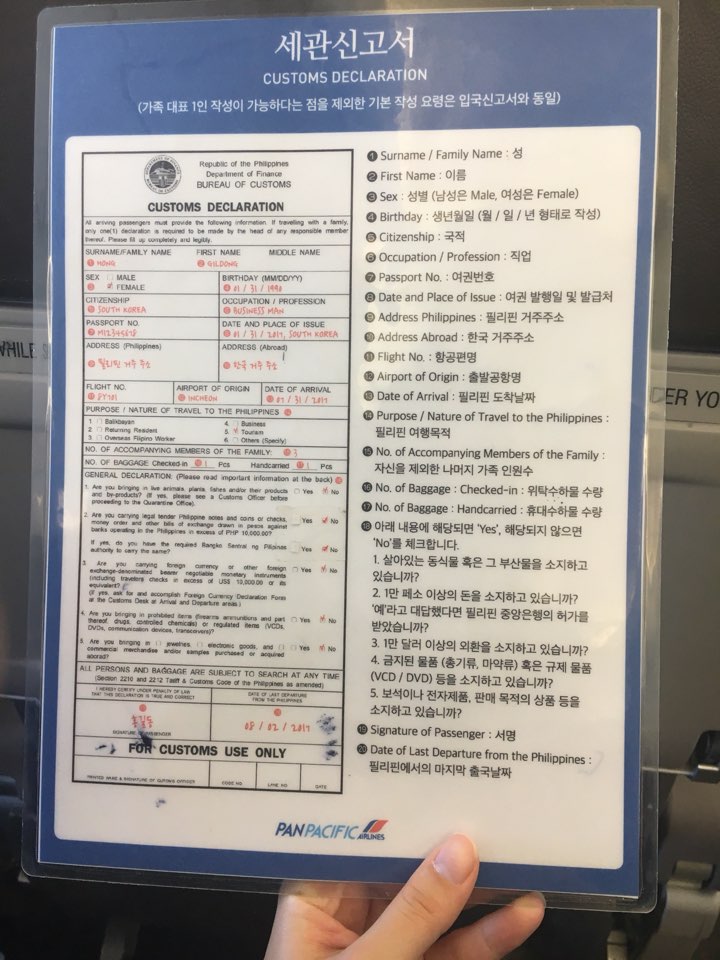 세관신고서
CUSTOMS DECLARATION
(가족 대표 1인 작성이 가능하다는 점을 제외한 기본 작성 요령은 입국신고서와 동일)
Republic of the Philippines
Department of Finance
BUREAU OF CUSTOMS
CUSTOMS DECLARATION
All arriving passengers must provide the following information. If travelling with a family,
only one(1) declaration is required to be made by the head of any responsible member
thereof. Please fill up completely and legibly.
SURNAME/FAMILY NAME FIRST NAME MIDDLE NAME
❶ HONG ❷ GILDONG
SEX MALE BIRTHDAY (MM/DD/YY)
❸ FEMALE ❹ 01 / 31 / 1990
CITIZENSHIP OCCUPATION / PROFESSION
❺ SOUTH KOREA ❻ BUSINESS MAN
PASSPORT NO. DATE AND PLACE OF ISSUE
❼ M12345678 ❽ 01 / 31 / 2017, SOUTH KOREA
ADDRESS (Philippines) ADDRESS (Abroad)
❾ 필리핀 거주 주소 ❿ 한국 거주 주소
FLIGHT NO. AIRPORT OF ORIGIN DATE OF ARRIVAL
⓫ 8Y701 ⓬ INCHEON ⓭ 07 / 31 / 2017
PURPOSE / NATURE OF TRAVEL TO THE PHILIPPINES ⓮
1. Balikbayan 4. Business
2. Returning Resident 5. Tourism
3. Overseas Filipino Worker 6. Others (Specify)
NO. OF ACCOMPANYING MEMBERS OF THE FAMILY: ⓯ 3
NO. OF BAGGAGE Checked-in ⓰ 1 Pcs Handcarried ⓱ 1 Pcs
GENERAL DECLARATION: (Please read important information at the back) ⓲
1. Are you bringing in live animals, plants, fishes and/or their products
and by-products? (If yes, please see a Customs Officer before
proceeding to the Quarantine Office). Yes No
2. Are you carrying legal tender Philippine notes and coins or checks,
money order and other bills of exchange drawn in pesos against
banks operating in the Philippines in excess of PHP 10,000.00? Yes No
If yes, do you have the required Bangko Sentral ng Pilipinas
authority to carry the same? Yes No
3. Are you carrying foreign currency or other foreign
exchange-denominated bearer negotiable monetary instruments
(including travelers checks in excess of US$ 10,000.00 or its
equivalent? Yes No
(If yes, ask for and accomplish Foreign Currency Declaration Form
at the Customs Desk at Arrival and Departure areas.)
4. Are you bringing in prohibited items (firearms ammunitions and part
thereof, drugs, controlled chemicals) or regulated items (VCDs,
DVDs, communication devices, transceivers)? Yes No
5. Are you bringing in jewelries, electronic goods, and
commercial merchandise and/or samples purchased or acquired
abroad? Yes No
ALL PERSONS AND BAGGAGE ARE SUBJECT TO SEARCH AT ANY TIME
(Section 2210 and 2212 Tariff & Customs Code of the Philippines as amended)
I HEREBY CERTIFY UNDER PENALTY OF LAW
THAT THIS DECLARATION IS TRUE AND CORRECT
DATE OF LAST DEPARTURE
FROM THE PHILIPPINES
홍길동 08 / 02 / 2017
SIGNATURE OF PASSENGER
FOR CUSTOMS USE ONLY
PRINTED NAME & SIGNATURE OF CUSTOMS OFFICER CODE NO LANE NO DATE
❶ Surname / Family Name : 성
❷ First Name : 이름
❸ Sex : 성별 (남성은 Male, 여성은 Female)
❹ Birthday : 생년월일 (월 / 일 / 년 형태로 작성)
❺ Citizenship : 국적
❻ Occupation / Profession : 직업
❼ Passport No. : 여권번호
❽ Date and Place of Issue : 여권 발행일 및 발급처
❾ Address Philippines : 필리핀 거주주소
❿ Address Abroad : 한국 거주주소
⓫ Flight No. : 항공편명
⓬ Airport of Origin : 출발공항명
⓭ Date of Arrival : 필리핀 도착날짜
⓮ Purpose / Nature of Travel to the Philippines :
필리핀 여행목적
⓯ No. of Accompanying Members of the Family :
자신을 제외한 나머지 가족 인원수
⓰ No. of Baggage : Checked-in : 위탁수하물 수량
⓱ No. of Baggage : Handcarried : 휴대수하물 수량
⓲ 아래 내용에 해당되면 'Yes', 해당되지 않으면
'No'를 체크합니다.
1. 살아있는 동식물 혹은 그 부산물을 소지하고
있습니까?
2. 1만 페소 이상의 돈을 소지하고 있습니까?
'예'라고 대답했다면 필리핀 중앙은행의 허가를
받았습니까?
3. 1만 달러 이상의 외환을 소지하고 있습니까?
4. 금지된 물품 (총기류, 마약류) 혹은 규제 물품
(VCD / DVD) 등을 소지하고 있습니까?
5. 보석이나 전자제품, 판매 목적의 상품 등을
소지하고 있습니까?
⓳ Signature of Passenger : 서명
⓴ Date of Last Departure from the Philippines :
필리핀에서의 마지막 출국날짜
PANPACIFIC AIRLINES
WHILE
ER YO